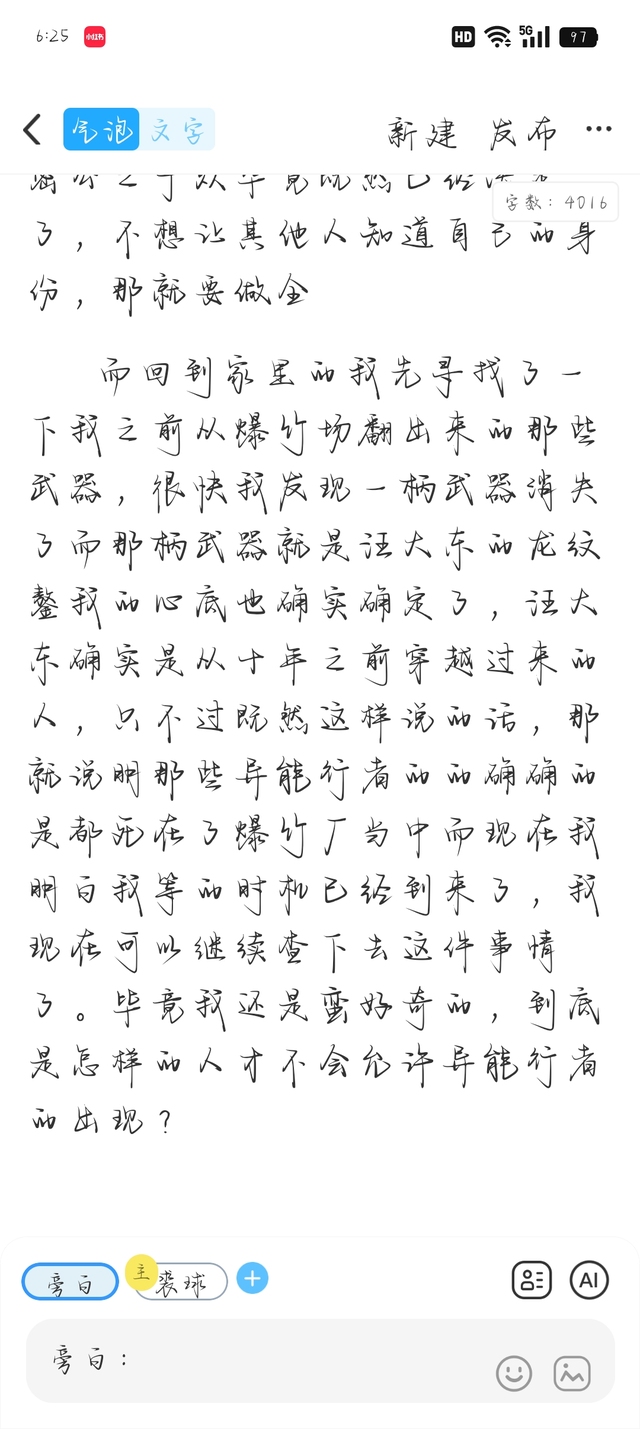 6:25 小红书 HD 5G 97
气泡 文字 新建 发布 ...
字数：4016
了，不想让其他人知道自己的身
份，那就要做全
而回到家里的我先寻找了一
下我之前从爆竹场翻出来的那些
武器，很快我发现一柄武器消失
了而那柄武器就是汪大东的龙纹
鏊我的心底也确实确定了，汪大
东确实是从十年之前穿越过来的
人，只不过既然这样说的话，那
就说明那些异能行者的的确确的
是都死在了爆竹厂当中而现在我
明白我等的时机已经到来了，我
现在可以继续查下去这件事情
了。毕竟我还是蛮好奇的，到底
是怎样的人才不会允许异能行者
的出现？
旁白 主 裘球 +
AI
旁白：